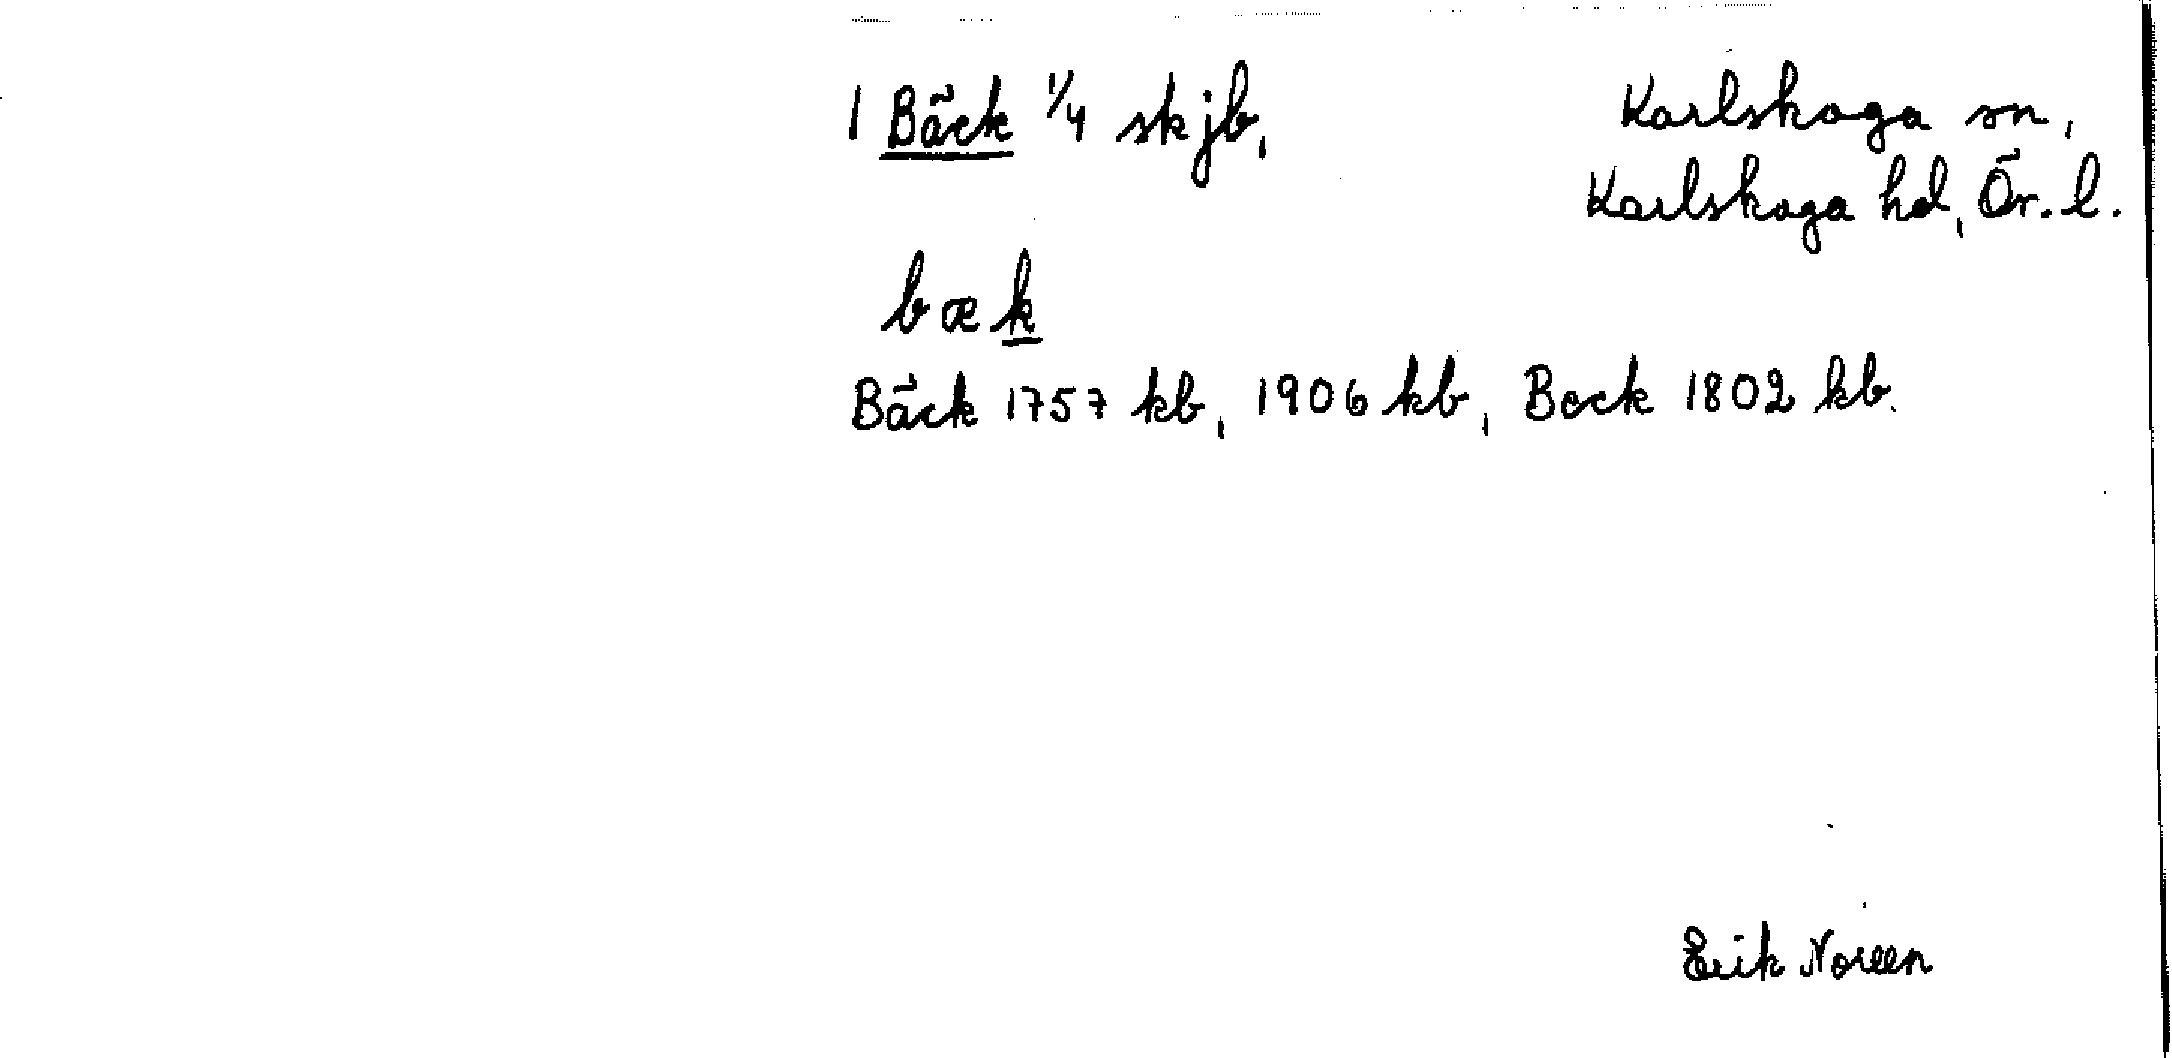 1 Bäck 1/4 sk jb,
Karlskoga sn,
Karlskoga hd, Ör. l.
bæk
Bäck 1757 kb, 1906 kb, Beck 1802 kb.
Erik Noreen